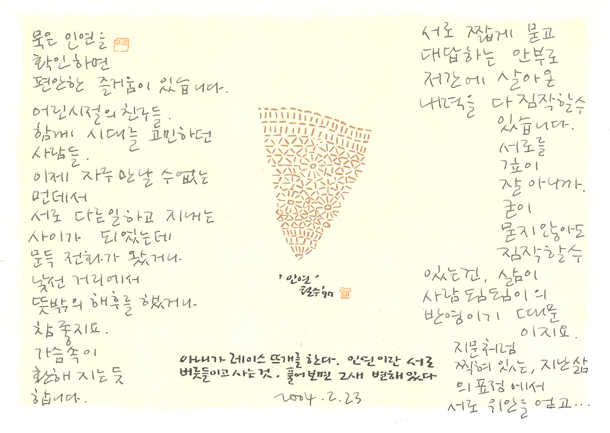 묵은 인연을
확인하면
편안한 즐거움이 있습니다.
어린시절의 친구들.
함께 시대를 고민하던
사람들.
이제 자주 만날 수 없는
먼데서
서로 다른일하고 지내는
사이가 되었는데
문득 전화가 왔거나
낯선 거리에서
뜻밖의 해후를 했거나
참 좋지요.
가슴속이
환해 지는듯
합니다.
'인연'
철수'90
아내가 레이스 뜨개를 한다. 인연이란 서로
버릇들이고 사는 것. 풀어보면 그새 변해있다
2004.2.23
서로 짧게 묻고
대답하는 안부로
저간에 살아온
내력을 다 짐작할수
있습니다.
서로를
깊이
잘 아니까.
굳이
묻지 않아도
짐작할수
있는건, 삶이
사람 됨됨이의
반영이기 때문
이지요.
지문처럼
찍혀 있는, 지난 삶
의 표정에서
서로 위안을 얻고...